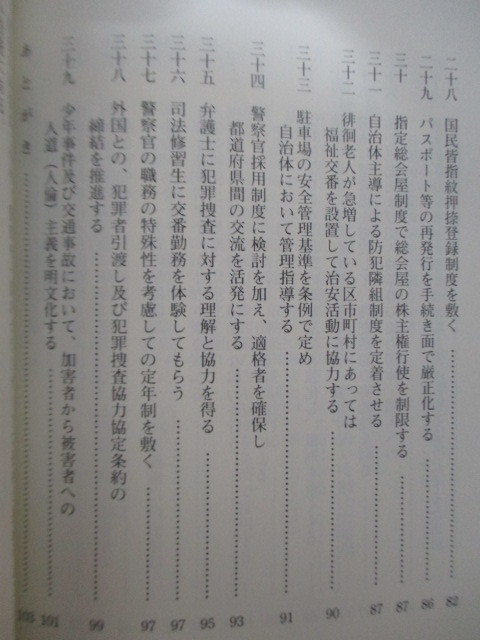 二十八　国民皆指紋押捺登録制度を敷く……………82
二十九　パスポート等の再発行を手続き面で厳正化する……………86
三十　指定総会屋制度で総会屋の株主権行使を制限する……………87
三十一　自治体主導による防犯隣組制度を定着させる……………87
三十二　徘徊老人が急増している区市町村にあっては
福祉交番を設置して治安活動に協力する……………90
三十三　駐車場の安全管理基準を条例で定め
自治体において管理指導する……………91
三十四　警察官採用制度に検討を加え、適格者を確保し
都道府県間の交流を活発にする……………93
三十五　弁護士に犯罪捜査に対する理解と協力を得る……………95
三十六　司法修習生に交番勤務を体験してもらう……………97
三十七　警察官の職務の特殊性を考慮しての定年制を敷く……………97
三十八　外国との、犯罪者引渡し及び犯罪捜査協力協定条約の
締結を推進する……………99
三十九　少年事件及び交通事故において、加害者から被害者への
人道（人倫）主義を明文化する……………101
あとがき……………103